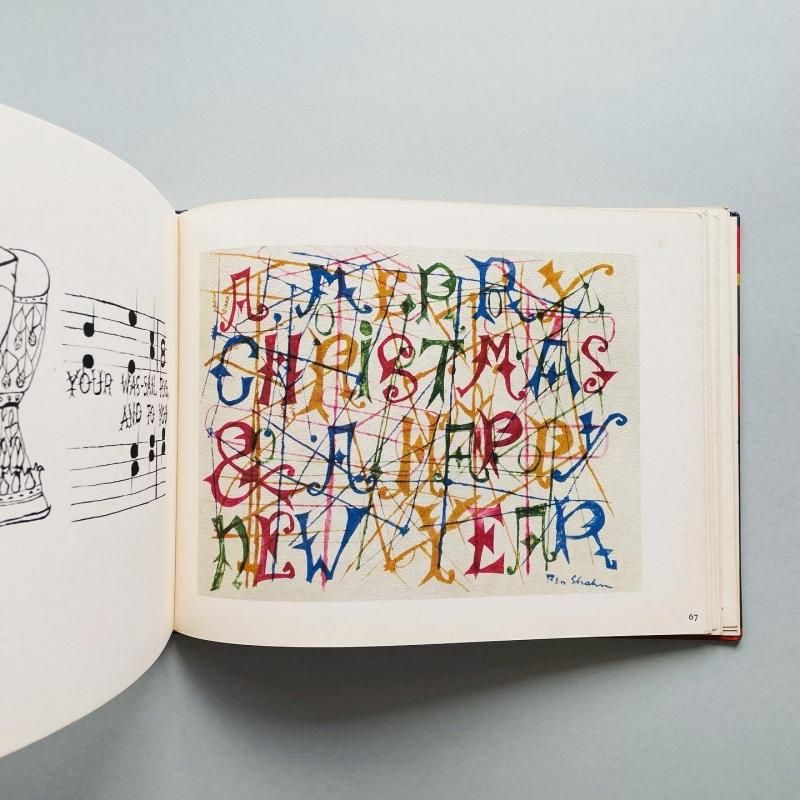 YOUR WAS-SAIL
AND TO YOU
A MERRY
CHRISTMAS
& A HAPPY
NEW YEAR
Ben Shahn
67